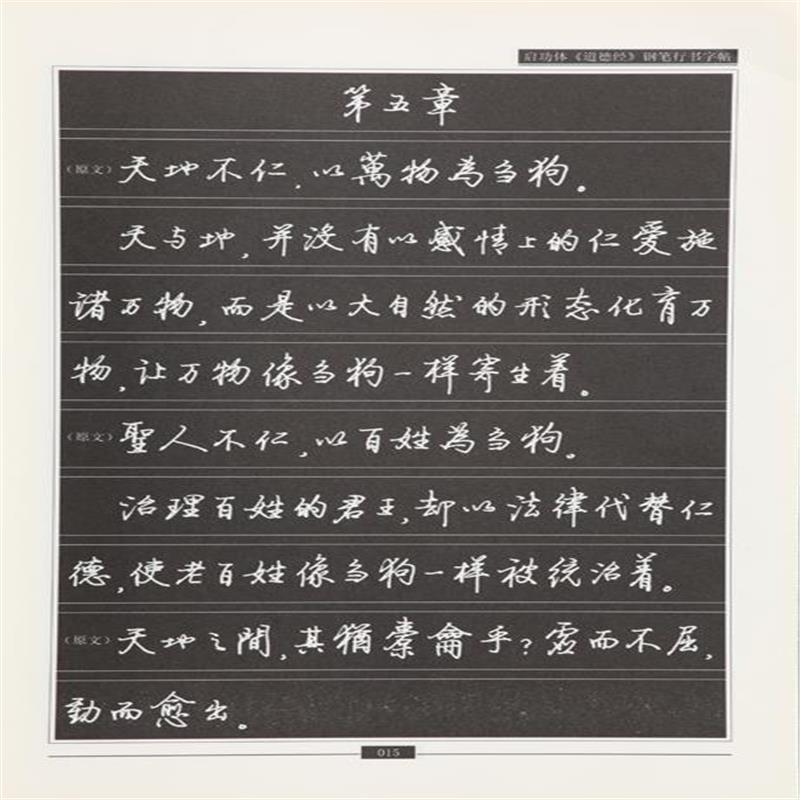 启功体《道德经》钢笔行书字帖
第五章
（原文）天地不仁，以萬物為刍狗。
天与地，并没有以感情上的仁爱施
诸万物，而是以大自然的形态化育万
物，让万物像刍狗一样寄生着。
（原文）聖人不仁，以百姓為刍狗。
治理百姓的君王，却以法律代替仁
德，使老百姓像刍狗一样被统治着。
（原文）天地之間，其猶橐龠乎？虚而不屈，
動而愈出。
015